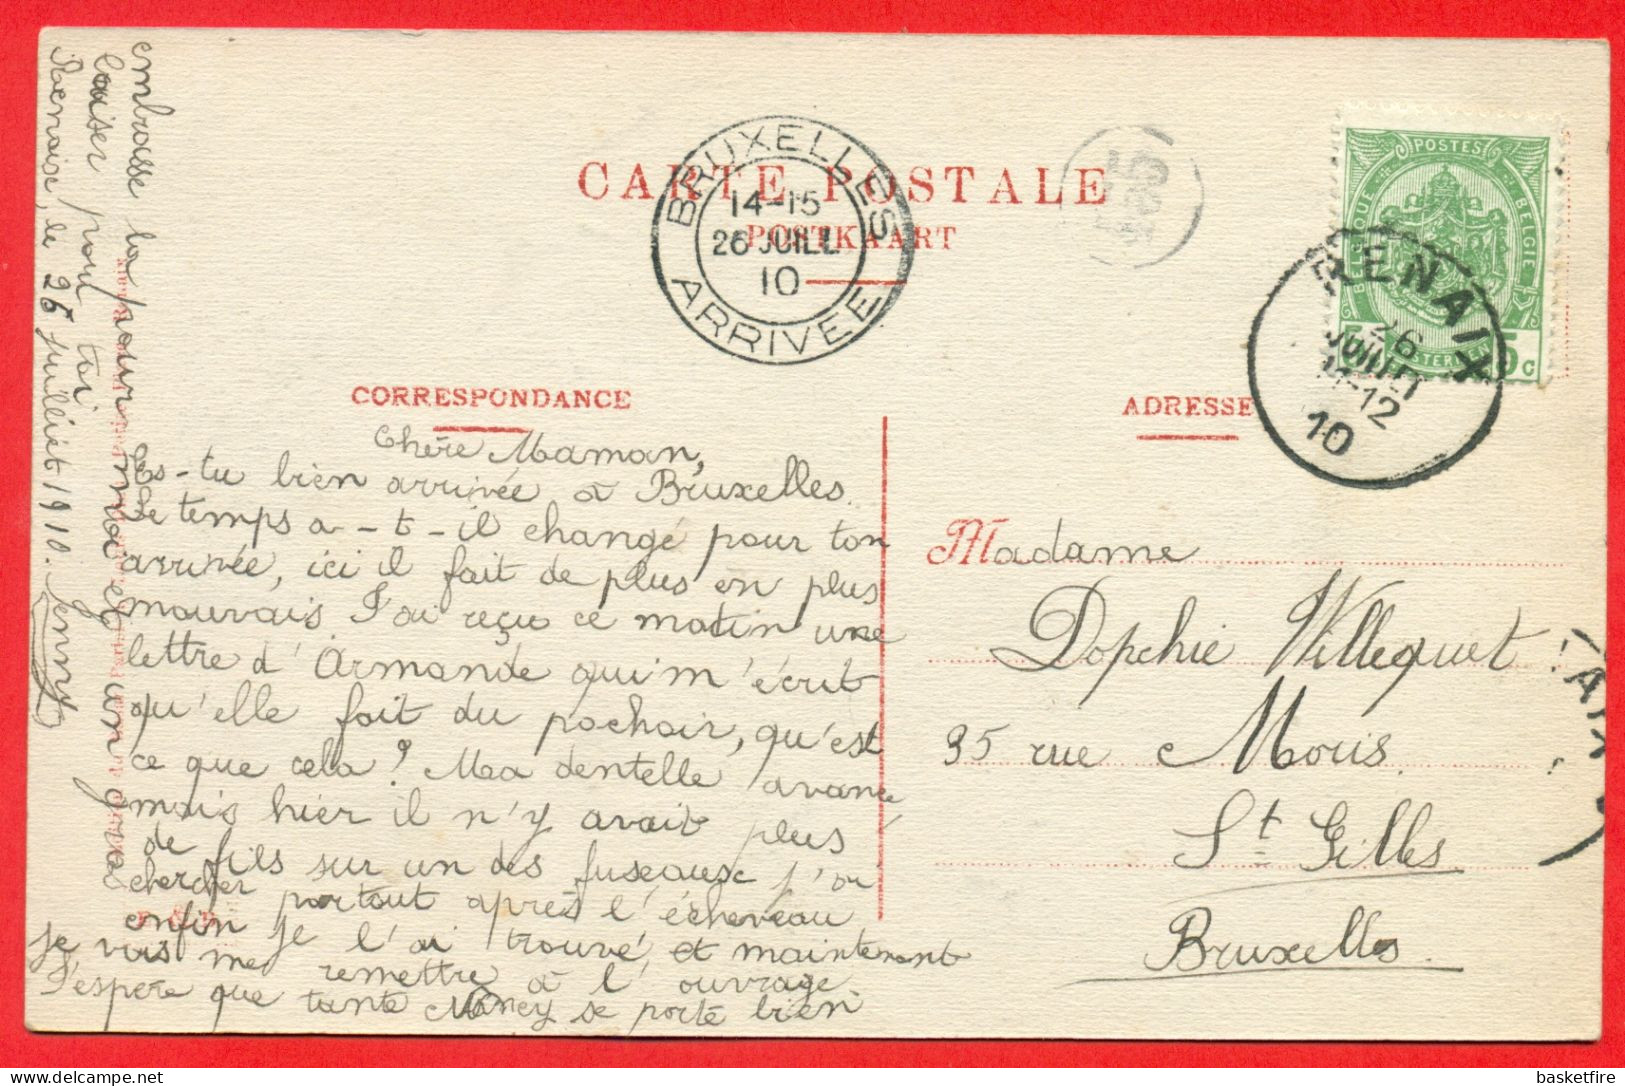 CARTE POSTALE
POSTKAART
BRUXELLES
14-15
26 JUILL
10
ARRIVEE
POSTES
BELGIQUE
BELGIË
5 c
RENAIX
26
JUILLET
11-12
10
CORRESPONDANCE
ADRESSE
Chère Maman,
Es-tu bien arrivée à Bruxelles.
Le temps a-t-il changé pour ton
arrivée, ici il fait de plus en plus
mauvais J'ai reçu ce matin une
lettre d'Armande qui m'écrit
qu'elle fait du pochoir, qu'est
ce que cela? Ma dentelle avance
mais hier il n'y avait plus
de fils sur un des fuseaux j'ai
chercher partout après l'écheveau
enfin je l'ai trouvé, et maintenant
je vais me remettre à l'ouvrage
J'espère que tante Nancy se porte bien
embrasse la pour moi et un gros
baiser pour toi
Renaix, le 26 juillet 1910. Jenny
Madame
Dopchie Willequet
95 rue Moris.
St Gilles
Bruxelles.
AIX
basketfire